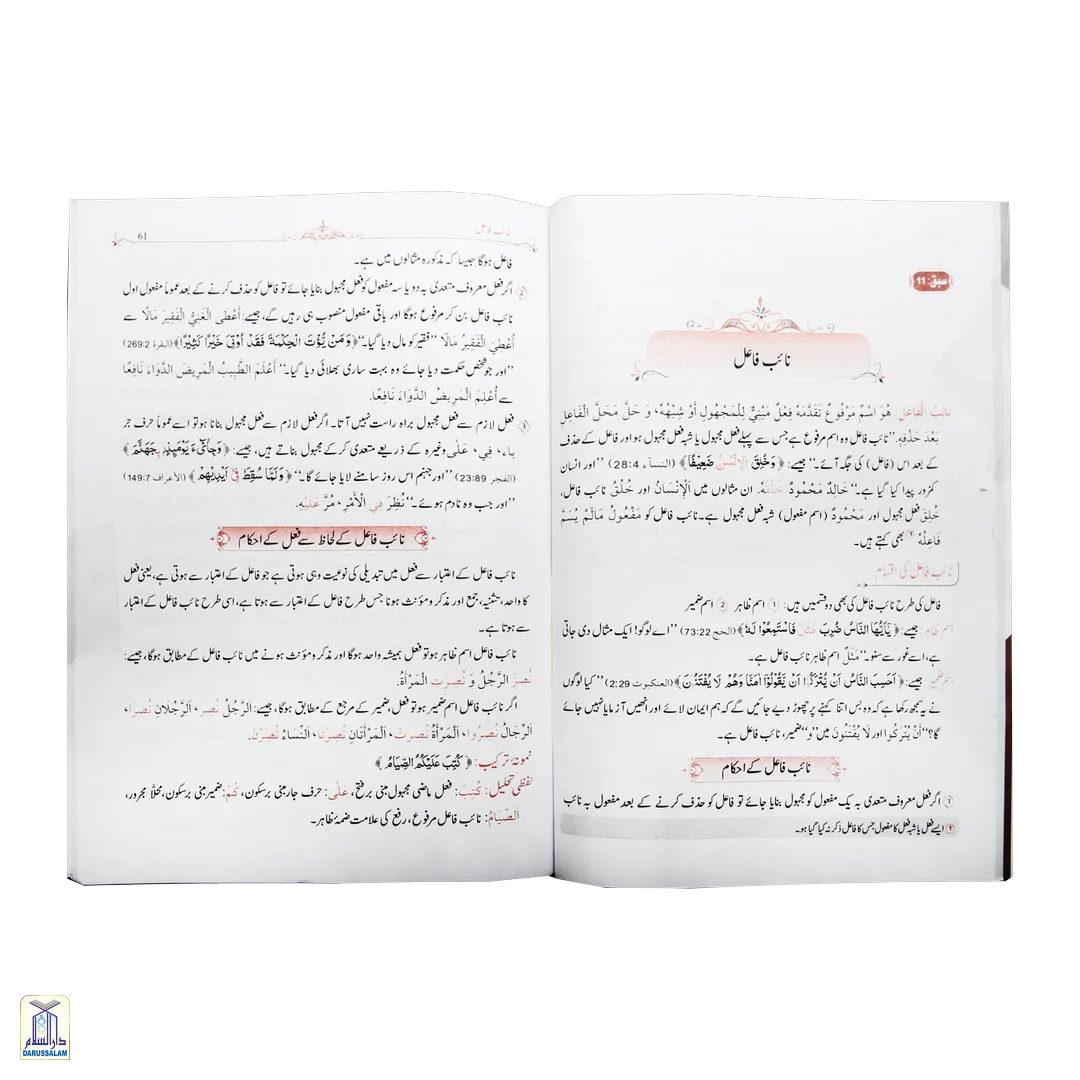 سبق: 11
نائب فاعل
نَائِبُ الْفَاعِلِ: هُوَ اسْمٌ مَرْفُوعٌ تَقَدَّمَهٗ فِعْلٌ مَبْنِيٌّ لِلْمَجْهُولِ أَوْ شِبْهُهٗ، وَ حَلَّ مَحَلَّ الْفَاعِلِ
بَعْدَ حَذْفِهٖ. ’’نائب فاعل وہ اسم مرفوع ہے جس سے پہلے فعل مجہول یا شبہ فعل مجہول ہو اور فاعل کے حذف
کے بعد اس (فاعل) کی جگہ آئے۔‘‘ جیسے: ﴿وَخُلِقَ الْاِنْسٰنُ ضَعِيْفًا﴾ (النساء 28:4) ’’اور انسان
کمزور پیدا کیا گیا ہے۔‘‘ خَالِدٌ مَحْمُودٌ خُلُقُهٗ. ان مثالوں میں اَلْإِنْسَانُ اور خُلُقُ نائب فاعل،
خُلِقَ فعل مجہول اور مَحْمُودٌ (اسم مفعول) شبہ فعل مجہول ہے۔ نائب فاعل کو مَفْعُولُ مَالَمْ يُسَمَّ
فَاعِلُهٗ ¶ بھی کہتے ہیں۔
نائب فاعل کی اقسام
فاعل کی طرح نائب فاعل کی بھی دو قسمیں ہیں: ① اسم ظاہر ② اسم ضمیر
اسم ظاہر جیسے: ﴿يٰۤاَيُّهَا النَّاسُ ضُرِبَ مَثَلٌ فَاسْتَمِعُوْا لَهٗ﴾ (الحج 73:22) ’’اے لوگو! ایک مثال دی جاتی
ہے، اسے غور سے سنو۔‘‘ مَثَلٌ اسم ظاہر نائب فاعل ہے۔
اسم ضمیر جیسے: ﴿اَحَسِبَ النَّاسُ اَنْ يُّتْرَكُوْۤا اَنْ يَّقُوْلُوْۤا اٰمَنَّا وَهُمْ لَا يُفْتَنُوْنَ﴾ (العنکبوت 2:29) ’’کیا لوگوں
نے یہ سمجھ رکھا ہے کہ وہ بس اتنا کہنے پر چھوڑ دیے جائیں گے کہ ہم ایمان لائے اور انھیں آزمایا نہیں جائے
گا؟‘‘ أَنْ يُتْرَكُوا اور لَا يُفْتَنُونَ میں ’’و‘‘ ضمیر، نائب فاعل ہے۔
نائب فاعل کے احکام
① اگر فعل معروف متعدی بہ یک مفعول کو مجہول بنایا جائے تو فاعل کو حذف کرنے کے بعد مفعول بہ نائب
¶ ایسے فعل یا شبہ فعل کا مفعول جس کا فاعل ذکر نہ کیا گیا ہو۔
نائب فاعل 61
فاعل ہوگا جیسا کہ مذکورہ مثالوں میں ہے۔
② اگر فعل معروف متعدی بہ دو یا سہ مفعول کو فعل مجہول بنایا جائے تو فاعل کو حذف کرنے کے بعد عموماً مفعول اول
نائب فاعل بن کر مرفوع ہوگا اور باقی مفعول منصوب ہی رہیں گے، جیسے: أَعْطَى الْغَنِيُّ الْفَقِيرَ مَالًا سے
أُعْطِيَ الْفَقِيرُ مَالًا ’’فقیر کو مال دیا گیا۔‘‘ ﴿وَمَنْ يُّؤْتَ الْحِكْمَةَ فَقَدْ اُوْتِيَ خَيْرًا كَثِيْرًا﴾ (البقرة 269:2)
’’اور جو شخص حکمت دیا جائے وہ بہت ساری بھلائی دیا گیا۔‘‘ أَعْلَمَ الطَّبِيبُ الْمَرِيضَ الدَّوَاءَ نَافِعًا
سے أُعْلِمَ الْمَرِيضُ الدَّوَاءَ نَافِعًا.
③ فعل لازم سے فعل مجہول براہ راست نہیں آتا۔ اگر فعل لازم سے فعل مجہول بنانا ہو تو اسے عموماً حرف جر
باء، فِي، عَلٰى وغیرہ کے ذریعے متعدی کرکے مجہول بناتے ہیں، جیسے: ﴿وَجِايْٓءَ يَوْمَىِٕذٍۭ بِجَهَنَّمَ﴾
(الفجر 23:89) ’’اور جہنم اس روز سامنے لایا جائے گا۔‘‘ ﴿وَلَمَّا سُقِطَ فِيْۤ اَيْدِيْهِمْ﴾ (الأعراف 149:7)
’’اور جب وہ نادم ہوئے۔‘‘ نُظِرَ فِي الْأَمْرِ، مُرَّ عَلَيْهِ.
نائب فاعل کے لحاظ سے فعل کے احکام
نائب فاعل کے اعتبار سے فعل میں تبدیلی کی نوعیت وہی ہوتی ہے جو فاعل کے اعتبار سے ہوتی ہے، یعنی فعل
کا واحد، تثنیہ، جمع اور مذکر و مؤنث ہونا جس طرح فاعل کے اعتبار سے ہوتا ہے، اسی طرح نائب فاعل کے اعتبار
سے ہوتا ہے۔
نائب فاعل اسم ظاہر ہو تو فعل ہمیشہ واحد ہوگا اور مذکر و مؤنث ہونے میں نائب فاعل کے مطابق ہوگا، جیسے:
نُصِرَ الرَّجُلُ وَ نُصِرَتِ الْمَرْأَةُ.
اگر نائب فاعل اسم ضمیر ہو تو فعل، ضمیر کے مرجع کے مطابق ہوگا، جیسے: اَلرَّجُلُ نُصِرَ، اَلرَّجُلَانِ نُصِرَا،
اَلرِّجَالُ نُصِرُوا، اَلْمَرْأَةُ نُصِرَتْ، اَلْمَرْأَتَانِ نُصِرَتَا، اَلنِّسَاءُ نُصِرْنَ.
نمونۂ ترکیب: ﴿كُتِبَ عَلَيْكُمُ الصِّيَامُ﴾
لفظی تحلیل: كُتِبَ: فعل ماضی مجہول مبنی بر فتح، عَلٰى: حرف جار مبنی بر سکون، كُمْ: ضمیر مبنی بر سکون، محلاً مجرور،
اَلصِّيَامُ: نائب فاعل مرفوع، رفع کی علامت ضمۂ ظاہر۔
دارالسلام
DARUSSALAM